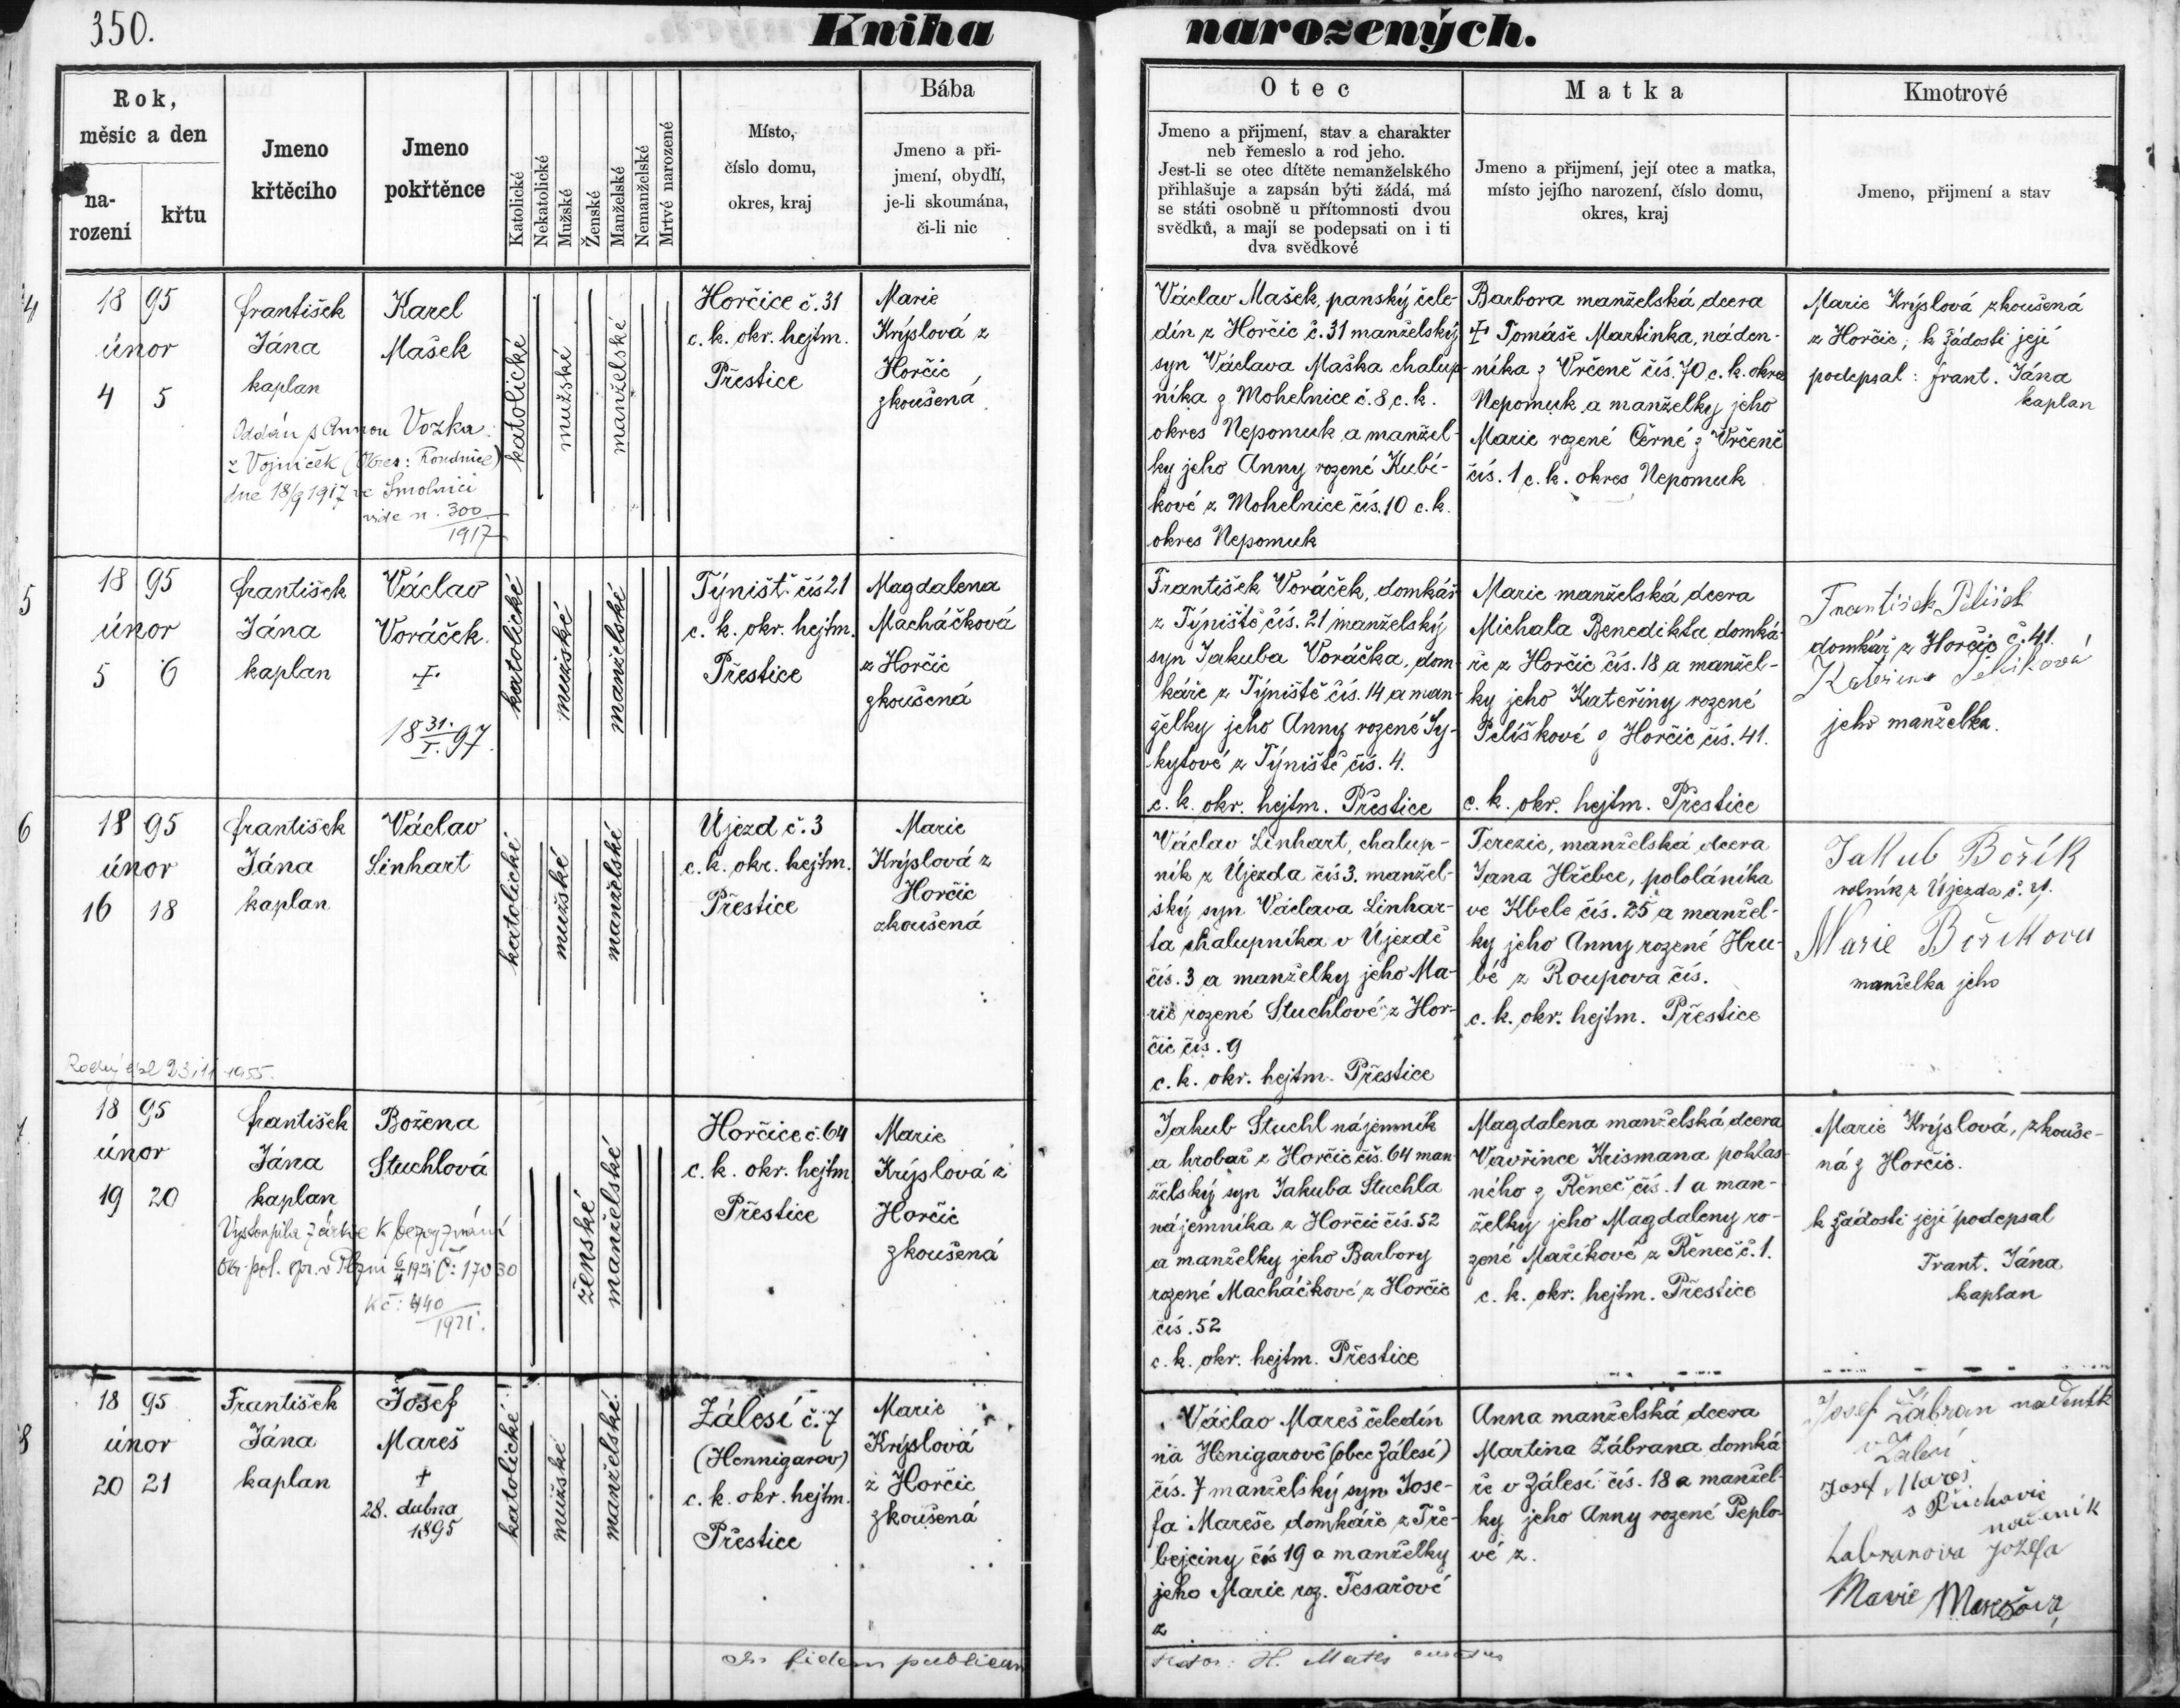 350.
Kniha narozených.
Rok,
měsíc a den
na-
rození
křtu
Jmeno
křtěcího
Jmeno
pokřtěnce
Katolické
Nekatolické
Mužské
Ženské
Manželské
Nemanželské
Mrtvé narozené
Místo,
číslo domu,
okres, kraj
Bába
Jmeno a při-
jmení, obydlí,
je-li skoumána,
či-li nic
Otec
Jmeno a přijmení, stav a charakter
neb řemeslo a rod jeho.
Jest-li se otec dítěte nemanželského
přihlašuje a zapsán býti žádá, má
se státi osobně u přítomnosti dvou
svědků, a mají se podepsati on i ti
dva svědkové
Matka
Jmeno a přijmení, její otec a matka,
místo jejího narození, číslo domu,
okres, kraj
Kmotrové
Jmeno, přijmení a stav
4
18 95
únor
4 5
František
Jána
kaplan
Karel
Mašek
Oddán s Annou Vozka
z Vojniček (Okres: Roudnice)
dne 18/9 1917 ve Smolnici
vide n. 300
1917
katolické
mužské
manželské
Horčice č. 31
c. k. okr. hejtm.
Přestice
Marie
Krýslová z
Horčic
zkoušená
Václav Mašek, panský čele-
dín z Horčic č. 31 manželský
syn Václava Maška chalup-
níka z Mohelnice č. 8 c. k.
okres Nepomuk a manžel-
ky jeho Anny rozené Kubí-
kové z Mohelnice čís. 10 c. k.
okres Nepomuk
Barbora manželská dcera
+ Tomáše Martinka, náden-
níka z Vrčeně čís. 70 c. k. okres
Nepomuk a manželky jeho
Marie rozené Černé z Vrčeně
čís. 1 c. k. okres Nepomuk
Marie Krýslová zkoušená
z Horčic, k žádosti její
podepsal: Frant. Jána
kaplan
5
18 95
únor
5 6
František
Jána
kaplan
Václav
Voráček
+
18 31./I. 97.
katolické
mužské
manželské
Týništ čís 21
c. k. okr. hejtm.
Přestice
Magdalena
Macháčková
z Horčic
zkoušená
František Voráček, domkář
z Týniště čís. 21 manželský
syn Jakuba Voráčka, dom-
káře z Týniště čís. 14 a man-
želky jeho Anny rozené Sy-
kytové z Týniště čís. 4.
c. k. okr. hejtm. Přestice
Marie manželská dcera
Michala Benedikta domká-
ře z Horčic čís. 18 a manžel-
ky jeho Kateřiny rozené
Pelíškové z Horčic čís. 41.
c. k. okr. hejtm. Přestice
František Pelíšek
domkář z Horčic č. 41.
Kateřina
jeho manželka.
6
18 95
únor
16 18
František
Jána
kaplan
Václav
Linhart
Rodný 23/11 1955.
katolické
mužské
manželské
Újezd č. 3
c. k. okr. hejtm.
Přestice
Marie
Krýslová z
Horčic
zkoušená
Václav Linhart, chalup-
ník z Újezda čís 3. manžel-
ský syn Václava Linhar-
ta chalupníka v Újezdě
čís. 3 a manželky jeho Ma-
rie rozené Stuchlové z Hor-
čic čís. 9
c. k. okr. hejtm. Přestice
Terezie, manželská dcera
Jana Hřebce, pololáníka
ve Kbele čís. 25 a manžel-
ky jeho Anny rozené Hru-
bé z Roupova čís.
c. k. okr. hejtm. Přestice
Jakub Bořík
rolník z Újezda č.
Marie Boříkova
manželka jeho
7
18 95
únor
19 20
František
Jána
kaplan
Božena
Stuchlová
Vystoupila z církve k bezvyznání
Okr. pol. spr. v Plzni 1921 Č: 17030
Kč: 440
1921.
ženské
manželské
Horčice č. 64
c. k. okr. hejtm
Přestice
Marie
Krýslová z
Horčic
zkoušená
Jakub Stuchl nájemník
a hrobař z Horčic čís. 64 man-
želský syn Jakuba Stuchla
nájemníka z Horčic čís. 52
a manželky jeho Barbory
rozené Macháčkové z Horčic
čís. 52
c. k. okr. hejtm. Přestice
Magdalena manželská dcera
Vavřince Krismana pohlas-
ného z Řeneč čís. 1 a man-
želky jeho Magdaleny ro-
zené Maříkové z Řeneč č. 1.
c. k. okr. hejtm. Přestice
Marie Krýslová, zkouše-
ná z Horčic.
k žádosti její podepsal
Frant. Jána
kaplan
8
18 95
únor
20 21
František
Jána
kaplan
Josef
Mareš
+
28. dubna
1895
katolické
mužské
manželské
Zálesí č. 7
(Hennigarov)
c. k. okr. hejtm.
Přestice
Marie
Krýslová
z Horčic
zkoušená
Václav Mareš čeledín
na Henigarově (obec Zálesí)
čís. 7 manželský syn Jose-
fa Mareše domkáře z Tře-
bejciny čís 19 a manželky
jeho Marie roz. Tesařové
z
Anna manželská dcera
Martina Zábrana domká-
ře v Zálesí čís. 18 a manžel-
ky jeho Anny rozené Peplo-
vé z.
Josef Zábran
v Zálesí
Josef Mareš
Zabranova Jozefa
Marie Marešova
In fidem publicam
H.